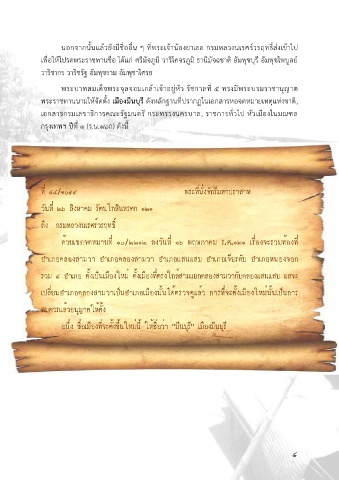 นอกจากนั้นแล้วยังมีชื่ออื่น ๆ ที่พระเจ้าน้องยาเธอ กรมหลวงนเรศร์วรฤทธิ์ส่งเข้าไป
เพื่อให้โปรดพระราชทานชื่อ ได้แก่ ศรีมัจฉภูมิ วารีโคจรภูมิ ธานีมัจฉชาติ อัมพุชบุรี อัมพุชไพบูลย์
วาริชากร วาริชรัฐ อัมพุชราม อัมพุชาไศรย
พระบาทสมเด็จพระจุลจอมเกล้าเจ้าอยู่หัว รัชกาลที่ ๕ ทรงมีพระบรมราชานุญาต
พระราชทานนามให้จัดตั้ง เมืองมีนบุรี ดังหลักฐานที่ปรากฏในเอกสารหอจดหมายเหตุแห่งชาติ,
เอกสารกรมเลขาธิการคณะรัฐมนตรี กระทรวงนครบาล, ราชการทั่วไป หัวเมืองในมณฑล
กรุงเทพฯ ปีที่ ๑ (ร.น.๑๓๙) ดังนี้
ที่ ๔๔/๑๐๙๙ พระที่นั่งจักรีมหาปราสาท
วันที่ ๒๖ สิงหาคม รัตนโกสินทรศก ๑๒๑
ถึง กรมหลวงนเรศร์วรฤทธิ์
ด้วยเธอจดหมายที่ ๑๐/๒๒๑๒ ลงวันที่ ๑๖ พฤษภาคม ร.ศ.๑๒๑ เรื่องจะรวมท้องที่
อำเภอคลองสามวา อำเภอแสนแสบ อำเภอเจียรดับ อำเภอหนองจอก
รวม ๔ อำเภอ ตั้งเป็นเมืองใหม่ ตั้งเมืองที่ตรงใกล้สามแยกคลองสามวากับคลองแสนแสบ และจะ
เปลี่ยนอำเภอคลองสามวาเป็นอำเภอเมืองนั้นได้ตรวจดูแล้ว การที่จะตั้งเมืองใหม่นั้นเป็นการ
สมควรแล้วอนุญาตให้ตั้ง
อนึ่ง ชื่อเมืองที่จะตั้งขึ้นใหม่นี้ ให้ชื่อว่า "มีนบุรี" เมืองมีนบุรี